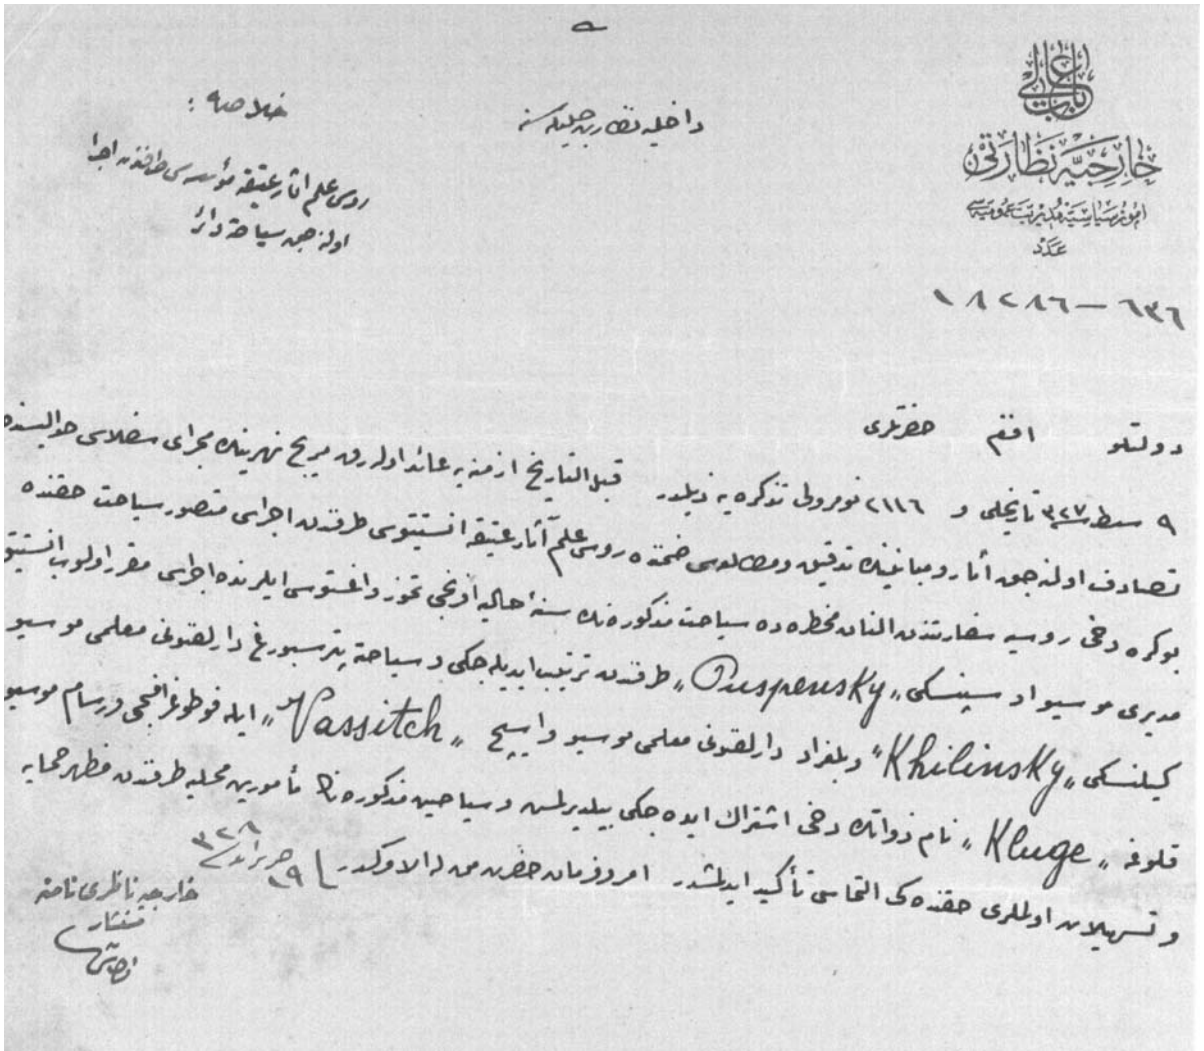 باب عالی
خارجیه نظارتی
امور سیاسیه مدیریت عمومیه‌سی
عدد
١٨٢٨٦ — ٦٣٦
داخلیه نظارت جلیله‌سنه
خلاصه :
روس علم آثار عتیقه مؤسسه‌سی طرفندن اجرا
اولنه‌جق سیاحته دائر
دولتلو افندم حضرتلری
٩ ٣٢٧ تاریخلی و ٢١١٦ نومرولی تذکره‌یه ذیلدر قبل التاریخ ازمنه‌یه عائد اوله‌رق مریچ نهرینك مجرای حوالیسنده
تصادف اولنه‌جق آثار و مبانینك تدقیق و مطالعه‌سی ضمننده روس علم آثار عتیقه انستیتوسی طرفندن اجراسی متصور سیاحت حقنده
بوکره دخی روسیه سفارتندن النان مخطره‌ده سیاحت مذکوره‌نك سنه حالیه افرنجی تموز و اغستوس ایلرنده اجراسی مقرر اولوب انستیتو
مدیری موسیو اوسپنسکی „Ouspensky” طرفندن ترتیب ایدیله‌جکی و سیاحته پترسبورغ دارالفنونی معلمی موسیو
کیلنسکی „Khilinsky” و بلغراد دارالفنونی معلمی موسیو واسیچ „Vassitch” ایله فوطوغرافجی و رسام موسیو
قلوغه „Kluge” نام ذواتك دخی اشتراك ایده‌جکی بیلدیرلمش و سیاحین مذکوره‌نك مأمورین محلیه طرفندن مظهر حمایه
و تسهیلات اولملری حقنده‌کی التماس تأکید ایدلمشدر امر و فرمان حضرت من له الامرکدر
١٩ حزیران ٣٢٨
خارجیه ناظری نامنه
مستشار